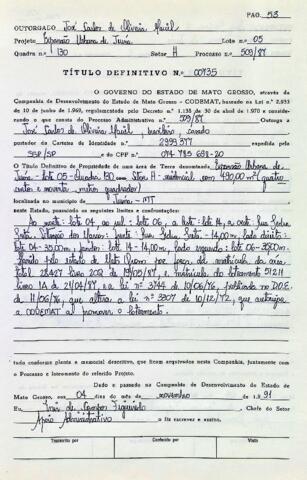 PAG. 53
OUTORGADO José Carlos de Oliveira Maciel
Projeto Expansão Urbana de Juína Lote no 05
Quadra n.º 130 Setor H Processo n.º 509/87
TÍTULO DEFINITIVO N.º 00735
O GOVERNO DO ESTADO DE MATO GROSSO, através da
Companhia de Desenvolvimento do Estado de Mato Grosso - CODEMAT, baseado na Lei n.º 2.933
de 10 de junho de 1969, regulamentada pelo Decreto N.º 1.138 de 30 de abril de 1.970 e considerando
o que consta do Processo Administrativo n.º 509/87 Outorga a
José Carlos de Oliveira Maciel, brasileiro, casado
portador da Carteira de Identidade n.º expedida pela
SSP/SP e do CPF n.º
O Título Definitivo de Propriedade de uma área de Terra denominada Expansão Urbana de
Juína - lote 05 - Quadra 130 com Setor H - residencial com 490,00m² (quatro
centos e noventa metros quadrados)
localizada no município de Juína - MT
neste Estado, possuindo os seguintes limites e confrontações:
ao norte: lote 04 ao sul - lote 06, a leste - lote 14, a oeste rua Pedro
14,00m lado direito:
lote 04 - 35,00m; fundos: lote 14 - 14,00m, lado esquerdo: lote 06 - 35,00m.
Havido pelo estado de Mato Grosso por matrícula da área
total 28.427 livro 202 de 19/05/87, e matrícula do loteamento 51211
livro 1A de 21/04/87 e a lei nº 3744 de 10/06/76, publicada no D.O.E.
de 11/06/76, que altera a lei nº 3307 de 10/12/72, que autoriza
a CODEMAT a promover o loteamento.
tudo conforme planta e memorial descritivo, que ficam arquivados nesta Companhia, juntamente com
o Processo e loteamento do referido Projeto.
Dado e passado na Companhia de Desenvolvimento do Estado de
Mato Grosso, aos 04 dias do mês de novembro de 1.991
Eu, de Campos Figueiredo, Chefe do Setor
Apoio Administrativo o fiz escrever e assino.
Transcrito por Conferido por Visto